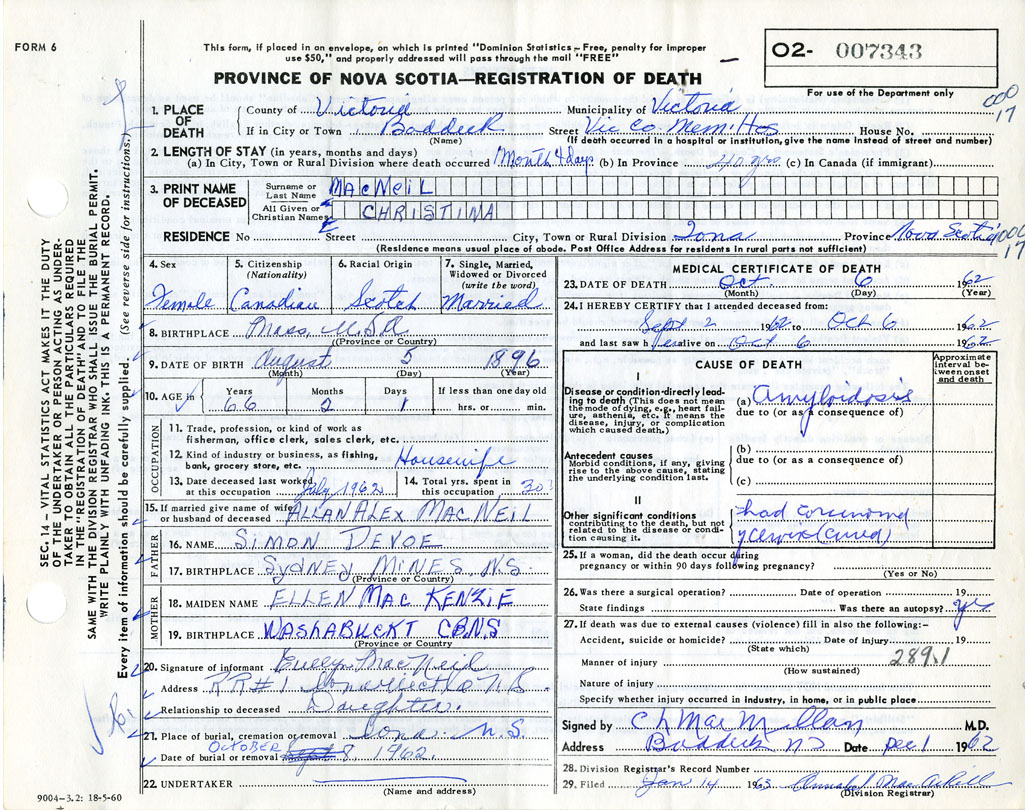 FORM 6
This form, if placed in an envelope, on which is printed "Dominion Statistics - Free, penalty for improper
use $50," and properly addressed will pass through the mail "FREE"
PROVINCE OF NOVA SCOTIA—REGISTRATION OF DEATH
02- 007343
For use of the Department only
000
17
1. PLACE OF DEATH
County of Victoria Municipality of Victoria
If in City or Town Baddeck Street Vic Co. Mem. Hos House No.
(Name) (If death occurred in a hospital or institution, give the name instead of street and number)
2. LENGTH OF STAY (in years, months and days)
(a) In City, Town or Rural Division where death occurred 1 Month 4 days (b) In Province 40 yrs (c) In Canada (if immigrant)
3. PRINT NAME OF DECEASED
Surname or Last Name MACNEIL
All Given or Christian Names CHRISTINA
RESIDENCE No Street City, Town or Rural Division Iona Province Nova Scotia
000
17
(Residence means usual place of abode. Post Office Address for residents in rural parts not sufficient)
4. Sex
Female
5. Citizenship (Nationality)
Canadian
6. Racial Origin
Scotch
7. Single, Married, Widowed or Divorced (write the word)
Married
8. BIRTHPLACE Mass. U.S.A
(Province or Country)
9. DATE OF BIRTH August 5 1896
(Month) (Day) (Year)
10. AGE in Years Months Days If less than one day old
66 2 1 hrs. or min.
OCCUPATION
11. Trade, profession, or kind of work as
fisherman, office clerk, sales clerk, etc.
12. Kind of industry or business, as fishing,
bank, grocery store, etc. Housewife
13. Date deceased last worked at this occupation July 1962
14. Total yrs. spent in this occupation 30
15. If married give name of wife or husband of deceased ALLAN ALEX MACNEIL
FATHER
16. NAME SIMON DEVOE
17. BIRTHPLACE SYDNEY MINES, N.S.
(Province or Country)
MOTHER
18. MAIDEN NAME ELLEN MAC KENZIE
19. BIRTHPLACE WASHABUCKT CB.N.S
(Province or Country)
20. Signature of informant MacNeil
Address RR#1 N.S.
Relationship to deceased Daughter.
21. Place of burial, cremation or removal Iona N.S
OCTOBER
Date of burial or removal 8, 1962
22. UNDERTAKER
(Name and address)
9004-3.2: 18-5-60
MEDICAL CERTIFICATE OF DEATH
23. DATE OF DEATH Oct. 6 1962
(Month) (Day) (Year)
24. I HEREBY CERTIFY that I attended deceased from:
Sept 2 1962 to Oct 6 1962
and last saw h er alive on Oct 6 1962
CAUSE OF DEATH
Approximate interval between onset and death
I
Disease or condition directly leading to death (This does not mean the mode of dying, e.g., heart failure, asthenia, etc. It means the disease, injury, or complication which caused death.)
(a) Amyloidosis
due to (or as a consequence of)
Antecedent causes
Morbid conditions, if any, giving rise to the above cause, stating the underlying condition last.
(b)
due to (or as a consequence of)
(c)
II
Other significant conditions
contributing to the death, but not related to the disease or condition causing it.
had
Cervix (Cured)
25. If a woman, did the death occur during
pregnancy or within 90 days following pregnancy?
(Yes or No)
26. Was there a surgical operation? Date of operation 19
State findings Was there an autopsy? yes
27. If death was due to external causes (violence) fill in also the following:–
Accident, suicide or homicide? Date of injury 19
(State which)
289.1
Manner of injury
(How sustained)
Nature of injury
Specify whether injury occurred in industry, in home, or in public place
Signed by C L MacMillan M.D.
Address Baddeck NS Date Dec 1 1962
28. Division Registrar's Record Number
29. Filed Jan 14 1963
(Division Registrar)
SEC. 14 – VITAL STATISTICS ACT MAKES IT THE DUTY
OF THE UNDERTAKER OR PERSON ACTING AS UNDER-
TAKER TO OBTAIN ALL THE PARTICULARS REQUIRED
IN THE "REGISTRATION OF DEATH" AND TO FILE THE
SAME WITH THE DIVISION REGISTRAR WHO SHALL ISSUE THE BURIAL PERMIT.
WRITE PLAINLY WITH UNFADING INK. THIS IS A PERMANENT RECORD.
Every item of information should be carefully supplied. (See reverse side for instructions.)